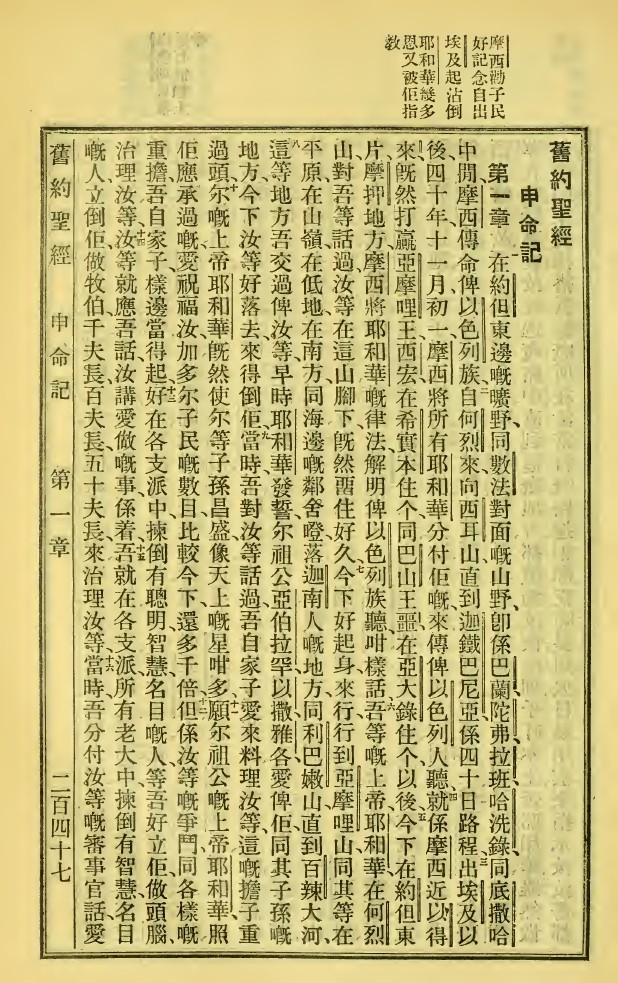 摩西勸子民
好記念自出
埃及起沾倒
耶和華幾多
恩又被佢指
教
舊約聖經
申命記
第一章 在約但東邊嘅曠野同數法對面嘅山野卽係巴蘭陀弗拉班哈洗錄同底撒哈
中間摩西傳命俾以色列族自何烈來向西耳山直到迦鐵巴尼亞係四十日路程出埃及以
後四十年十一月初一摩西將所有耶和華分付佢嘅來傳俾以色列人聽就係摩西近以得
來旣然打贏亞摩哩王西宏在希實本住个同巴山王噩在亞大錄住个以後今下在約但東
片摩押地方摩西將耶和華嘅律法解明俾以色列族聽咁樣話吾等嘅上帝耶和華在何烈
山對吾等話過汝等在這山腳下旣然畱住好久今下好起身來行行到亞摩哩山同其等在
平原在山嶺在低地在南方同海邊嘅鄰舍噔落迦南人嘅地方同利巴嫩山直到百辣大河
這等地方吾交過俾汝等早時耶和華發誓尔祖公亞伯拉罕以撒雅各愛俾佢同其子孫嘅
地方今下汝等好落去來得倒佢當時吾對汝等話過吾自家子愛來料理汝等這嘅擔子重
過頭尔嘅上帝耶和華旣然使尔等子孫昌盛像天上嘅星咁多願尔祖公嘅上帝耶和華照
佢應承過嘅愛祝福汝加多尔子民嘅數目比較今下還多千倍但係汝等嘅爭鬥同各樣嘅
重擔吾自家子樣邊當得起好在各支派中揀倒有聰明智慧名目嘅人等吾好立佢做頭腦
治理汝等汝等就應吾話汝講愛做嘅事係着吾就在各支派所有老大中揀倒有智慧名目
嘅人立倒佢做牧伯千夫長百夫長五十夫長來治理汝等當時吾分付汝等嘅審事官話愛
舊約聖經 申命記 第一章 二百四十七